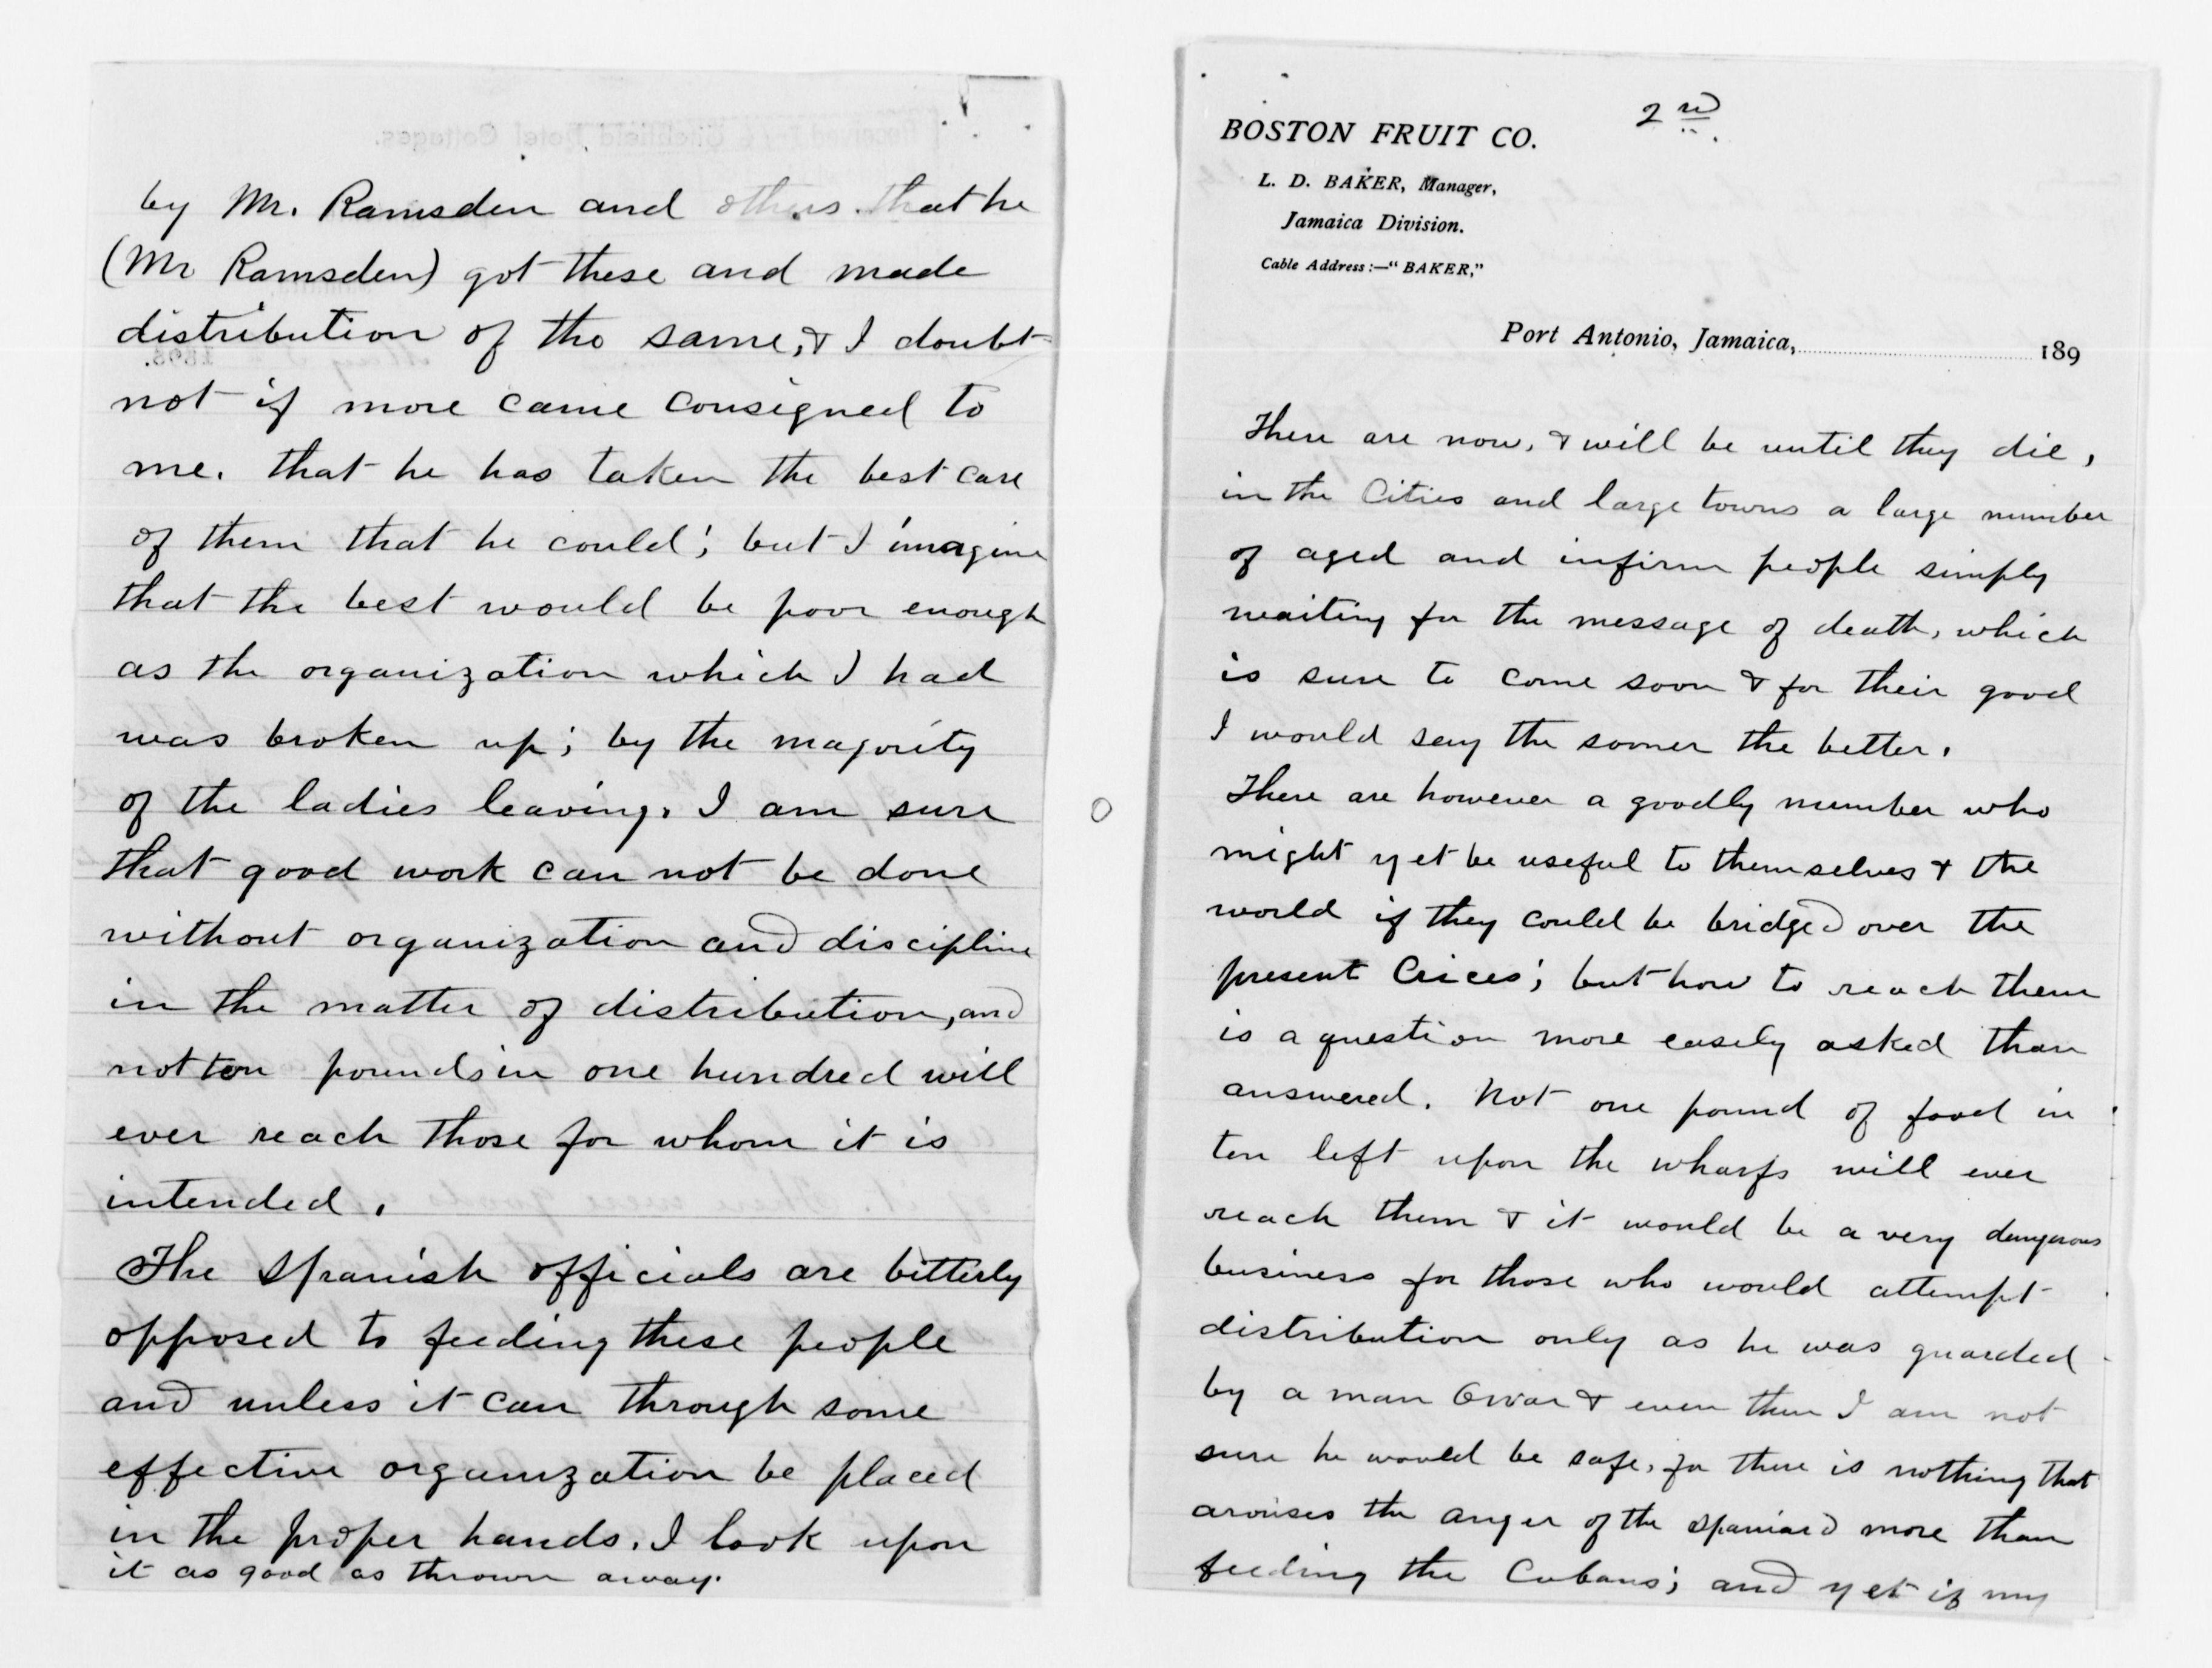 by Mr. Ramsden and others that he
(Mr Ramsden) got these and made
distribution of the same, & I doubt
not if more came consigned to
me. that he has taken the best care
of them that he could; but I imagine
that the best would be poor enough
as the organization which I had
was broken up; by the majority
of the ladies leaving. I am sure
that good work can not be done
without organization and discipline
in the matter of distribution, and
not ten pounds in one hundred will
ever reach those for whom it is
intended.
The Spanish officials are bitterly
opposed to feeding these people
and unless it can through some
effective organization be placed
in the proper hands. I look upon
it as good as thrown away.
2nd
BOSTON FRUIT CO.
L. D. BAKER, Manager,
Jamaica Division.
Cable Address:—"BAKER,"
Port Antonio, Jamaica, 189
There are now, & will be until they die,
in the Cities and large towns a large number
of aged and infirm people simply
waiting for the message of death, which
is sure to come soon & for their good
I would say the sooner the better.
There are however a goodly number who
might yet be useful to themselves & the
world if they could be bridged over the
present Crices; but how to reach them
is a question more easily asked than
answered. Not one pound of food in
ten left upon the wharfs will ever
reach them & it would be a very dangerous
business for those who would attempt
distribution only as he was guarded
by a man Owar & even then I am not
sure he would be safe, for there is nothing that
arouses the anger of the Spaniard more than
feeding the Cubans; and yet if my